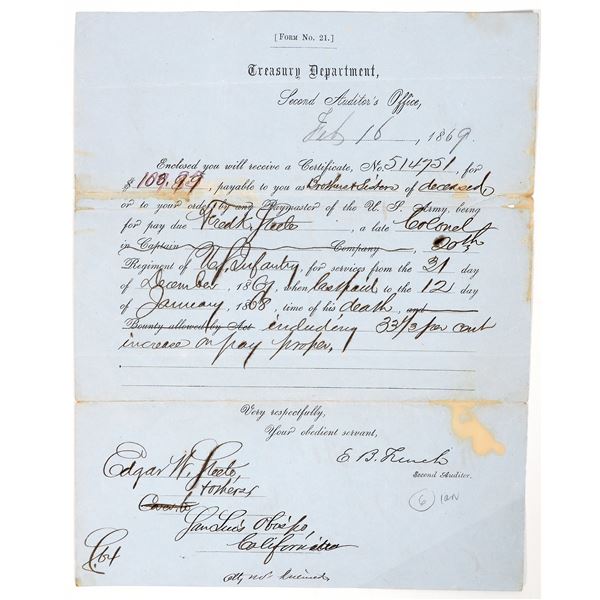 [FORM No. 21.]
Treasury Department,
Second Auditor's Office,
Feb 16, 1869.
Enclosed you will receive a Certificate, No. 514751, for
$103.99, payable to you as Brothers & Sisters of deceased
or to your order by any Paymaster of the U. S. Army, being
for pay due Fredk. Steele, a late Colonel
in Captain Company, 20th
Regiment of U.S. Infantry, for services from the 31 day
of December, 1867, when last paid to the 12 day
of January, 1868, time of his death, and
Bounty allowed by Act including 33 1/3 per cent
increase on pay proper.
Very respectfully,
Your obedient servant,
E B. French
Second Auditor.
Edgar W. Steele,
& others
San Luis Obispo,
California
6